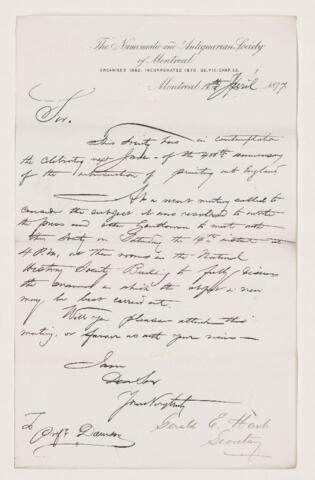 The Numismatic and Antiquarian Society
of Montreal
ORGANISED 1862, INCORPORATED 1870, 33. VIC. CHAP. 53.
Montreal April 1877
Sir.
This Society has in contemplation
the celebrating next June of the 400th anniversary
of the introduction of printing into England
At a recent meeting called to
consider the subject it was resolved to invite
the press and other Gentlemen to meet with
this Society on Saturday the 14th instant at
4 P.M. at their rooms in the Natural
History Society Building to fully discuss
the manner in which the object in view
may be best carried out.
Will you please attend this
meeting, or favour us with your views
I am
Dear Sir
Yours very truly
Gerald E. Hart
Secretary
To
Prof. Dawson